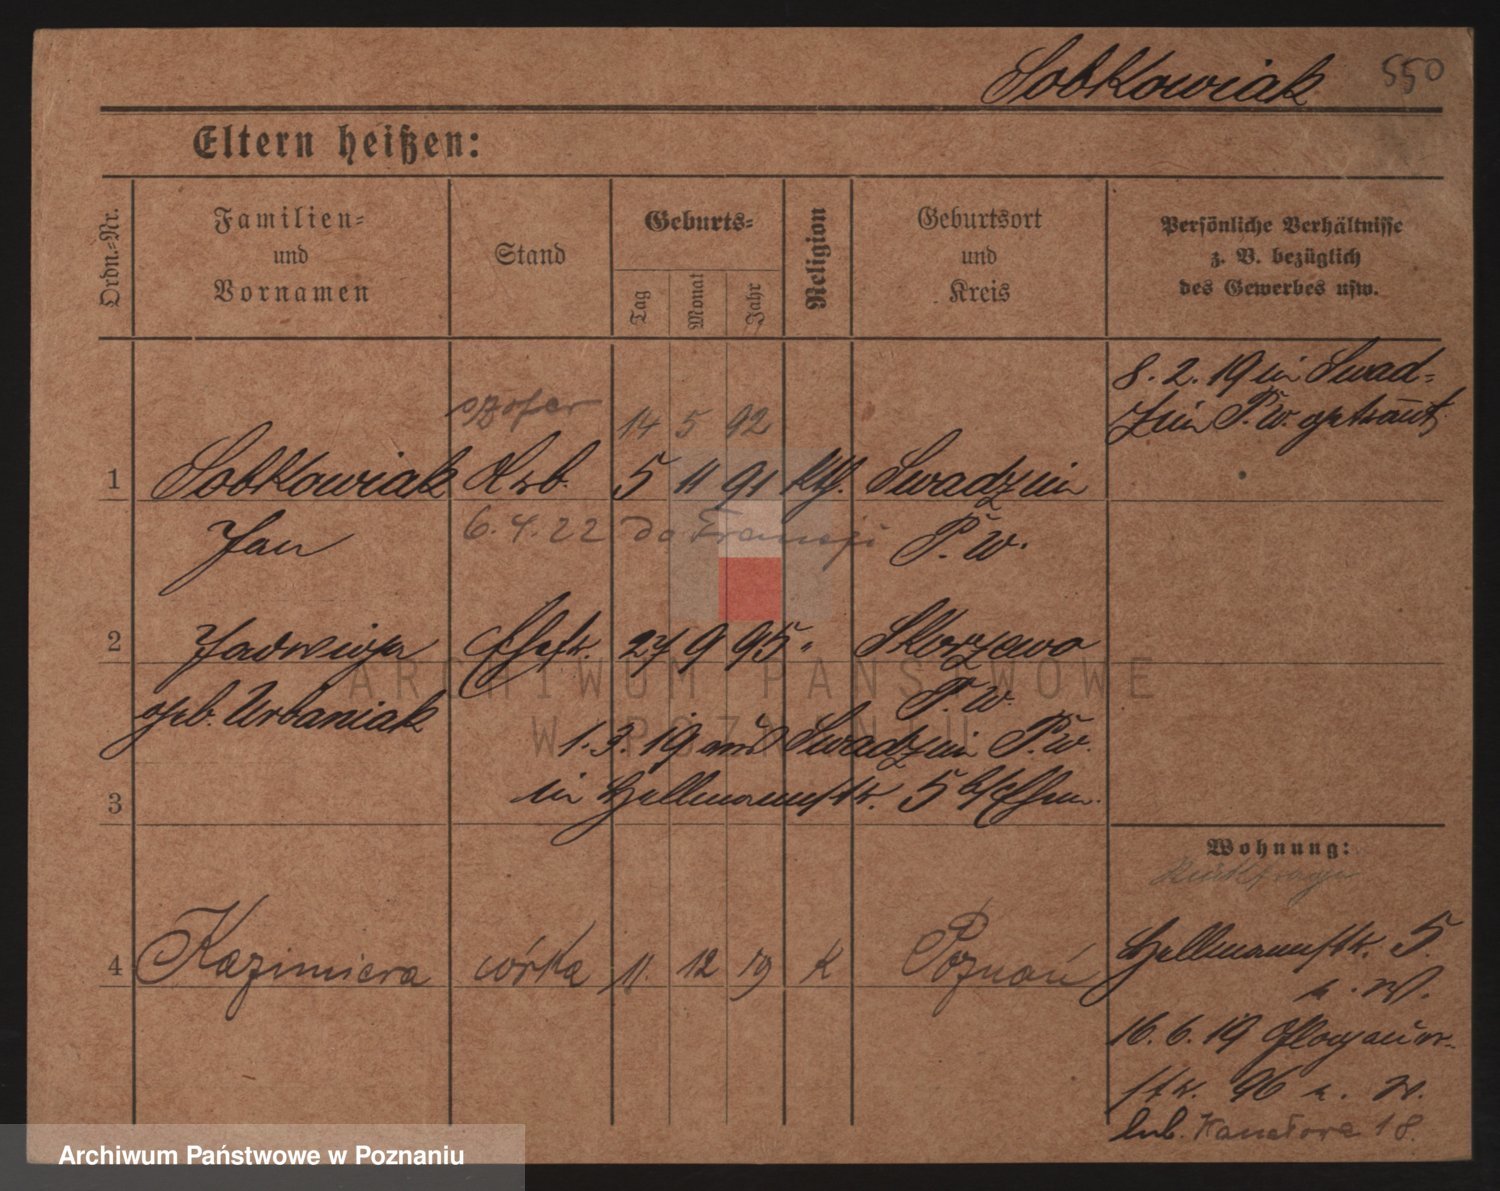 Sobkowiak 550
Eltern heißen:
Ordn.-Nr.
Familien-
und
Vornamen
Stand
Geburts-
Tag
Monat
Jahr
Religion
Geburtsort
und
Kreis
Persönliche Verhältnisse
z. B. bezüglich
des Gewerbes usw.
8. 2. 19 in Swad-
zim P. W. getraut
szofer 14 5 92
1 Sobkowiak Arb. 5 11 91 kth. Swadzim
Jan 6.4.22 do Francji P. W.
2 Jadwiga Ehefr. 27 9 95 " Skorzewo
geb. Urbaniak P. W.
1. 3. 19 aus Swadzim P. W.
3 in Hellmannstr. 5 b/Ehem.
Wohnung:
4 Kazimiera córka 11. 12 19 K Poznań
Hellmannstr. 5.
b. W.
16. 6. 19 Glogauer-
str. 96 b. W.
lub. Kanałowa 18.
ARCHIWUM PAŃSTWOWE
W POZNANIU
Archiwum Państwowe w Poznaniu